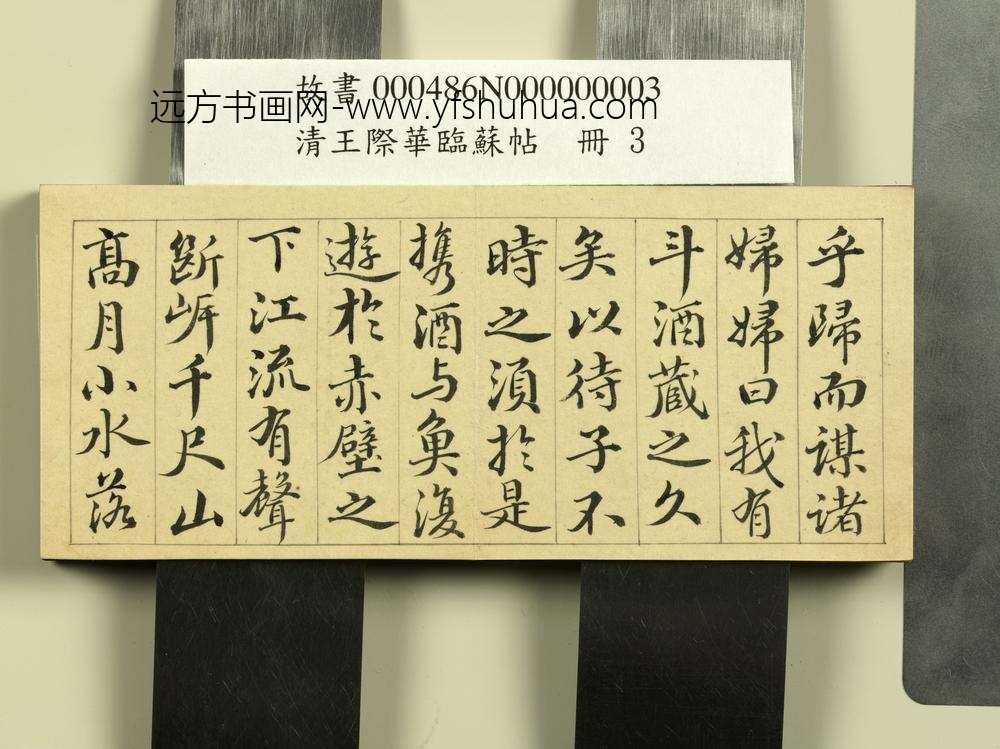 故書 000486N000000003
远方书画网-www.yfshuhua.com
清王際華臨蘇帖 冊 3
乎歸而謀諸
婦婦曰我有
斗酒藏之久
矣以待子不
時之須於是
攜酒与魚復
遊於赤壁之
下江流有聲
斷岸千尺山
高月小水落